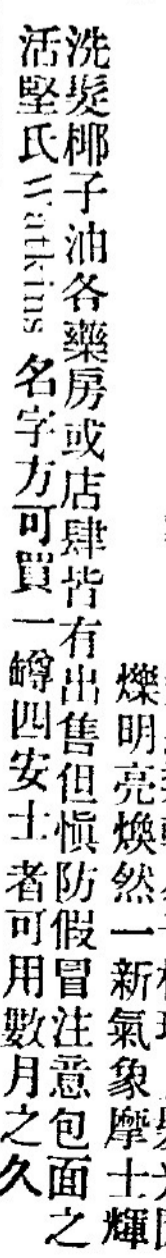 爍明亮煥然一新氣象摩士輝
洗髮椰子油各藥房或店肆皆有出售但愼防假冒注意包面之
活堅氏Watkins名字方可買一罇四安士者可用數月之久